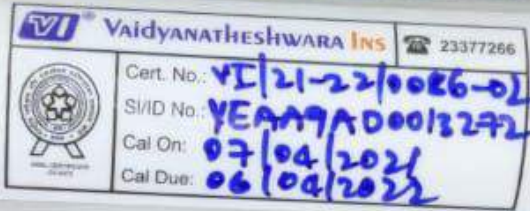 VI VAIDYANATHESHWARA INS 23377266
Cert. No.: VI/21-22/0086-02
SI/ID No.: YEAA9AD0013272
Cal On: 07/04/2021
Cal Due: 06/04/2022